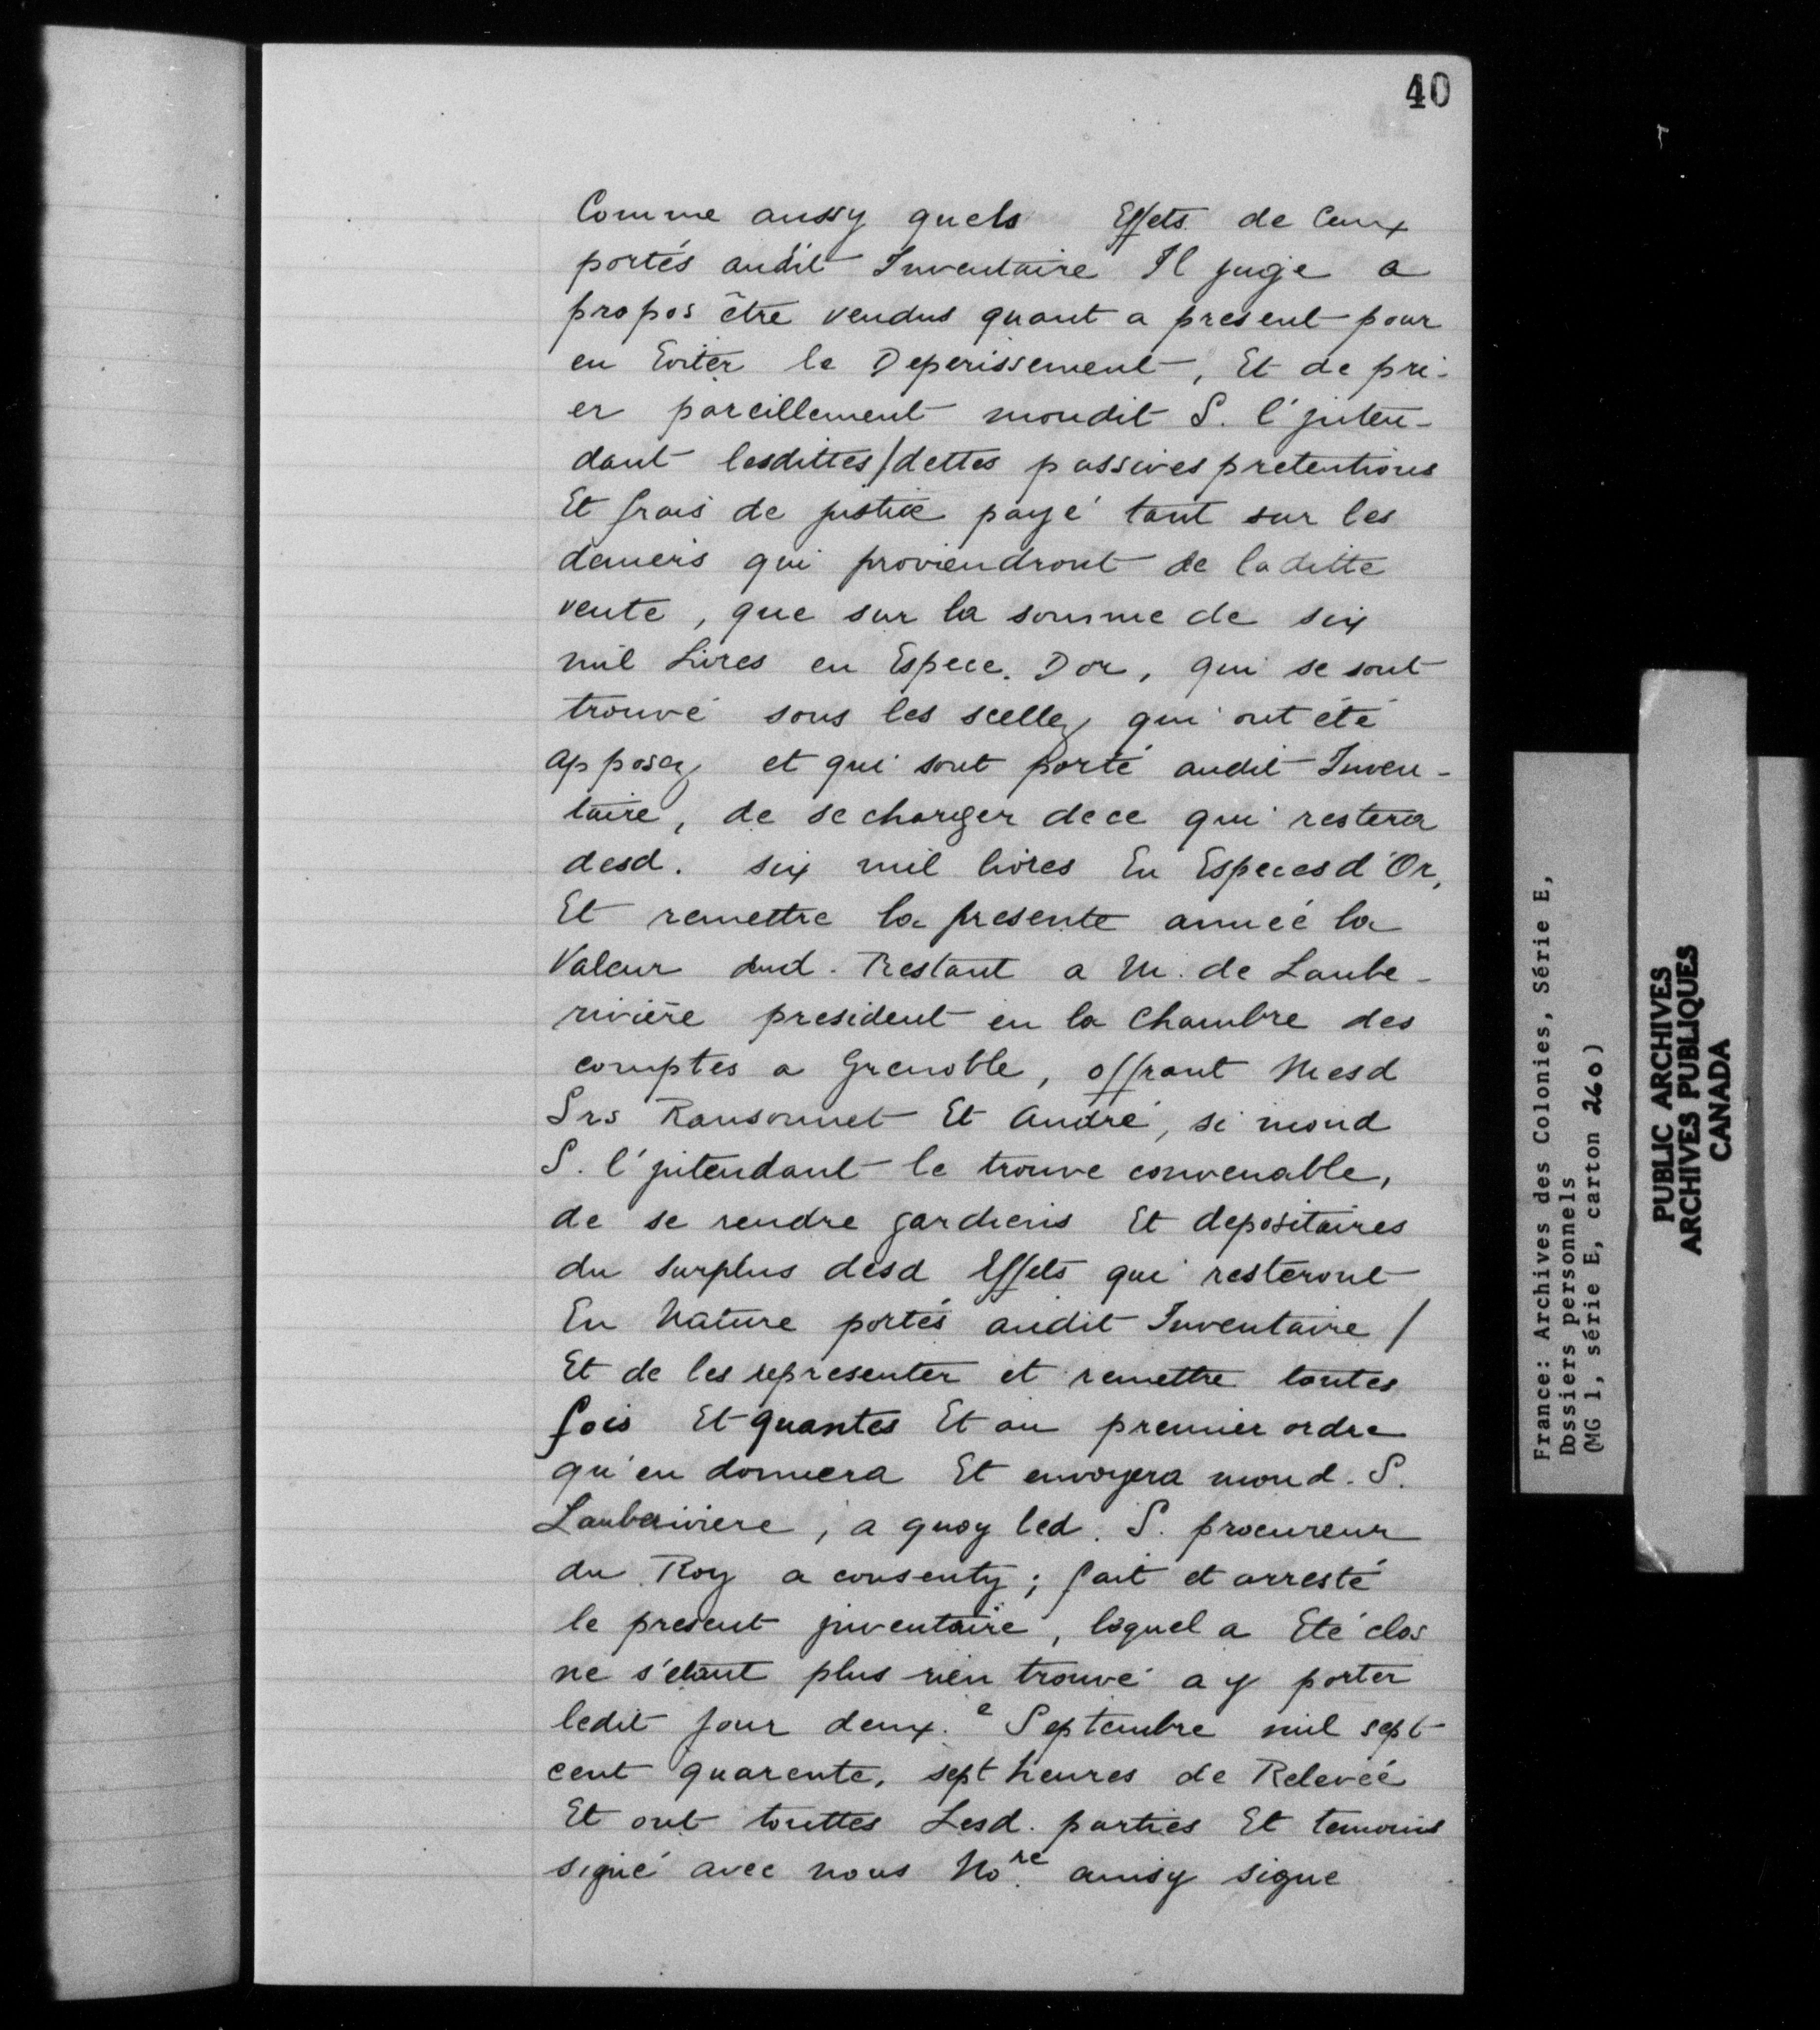 40
Comme aussy quels Effets de Ceux
portés audit Inventaire Il juge a
propos être vendus quant a present pour
en Eviter le Deperissement, Et de pri-
er pareillement mondit S. l'jnten-
dant lesdittes/dettes passives pretentions
Et frais de justice payé tant sur les
deniers qui proviendront de laditte
vente, que sur la somme de six
mil Livres en Espece. Dor, qui se sont
trouvé sous les scellez qui ont été
apposez et qui sont porté audit Inven-
taire, de se charger dece qui restera
desd. six mil livres En Especes d'Or,
Et remettre la presente année la
Valeur dud. Restant a M. de Laube-
rivière president en la Chambre des
comptes a Grenoble, offrant Mesd
Srs Ransonnet Et André, si mond
S. l'jntendant le trouve convenable,
de se rendre gardiens Et depositaires
du surplus desd Effets qui resteront
En Nature portés audit Inventaire /
Et de les representer et remettre toutes
fois Et quantes Et au premier ordre
qu'en donnera Et envoyera mond. S.
Lauberiviere, a quoy led. S. procureur
du Roy a consenty; fait et arresté
le present jnventaire, lequel a Eté clos
ne s'étant plus rien trouvé a y porter
ledit jour deux.e Septembre mil sept
cent quarente, sept heures de Relevée
Et ont touttes Lesd. parties Et temoins
signé avec nous No.re ainsy signe
France: Archives des Colonies, Série E,
Dossiers personnels
(MG 1, série E, carton 260)
PUBLIC ARCHIVES
ARCHIVES PUBLIQUES
CANADA